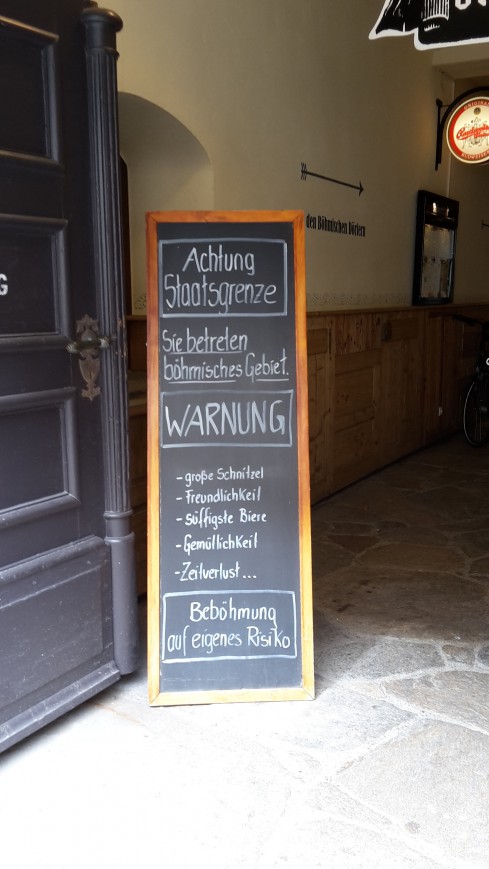 Achtung
Staatsgrenze
Sie betreten
böhmisches Gebiet.
WARNUNG
- große Schnitzel
- Freundlichkeit
- süffigste Biere
- Gemütlichkeit
- Zeitverlust...
Beböhmung
auf eigenes Risiko
den Böhmischen Dörfern
ORIGINAL
G